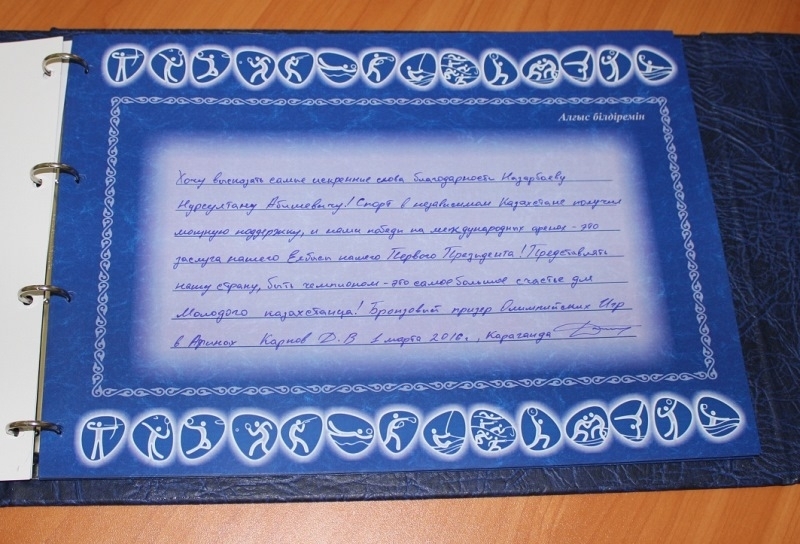 Алғыс білдіремін
Хочу высказать самые искренние слова благодарности Назарбаеву
Нурсултану Абишевичу! Спорт в независимом Казахстане получил
мощную поддержку, и наши победы на международных аренах - это
заслуга нашего Елбасы нашего Первого Президента! Представлять
нашу страну, быть чемпионом - это самое большое счастье для
Молодого казахстанца! Бронзовый призер Олимпийских Игр
в Афинах Карпов Д.В 1 марта 2016г., Караганда